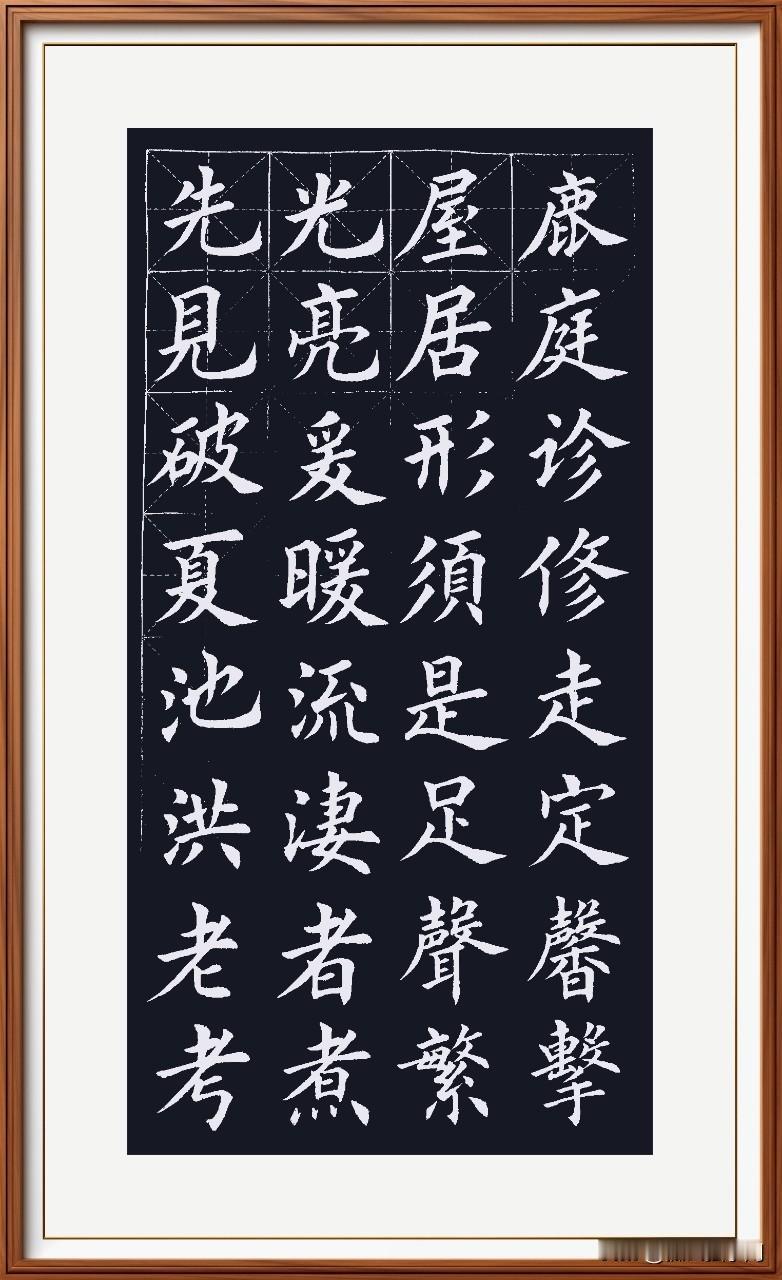 鹿庭诊修走定馨擊
屋居形須是足聲繁
光亮爰暖流淒者煮
先見破夏池洪老考